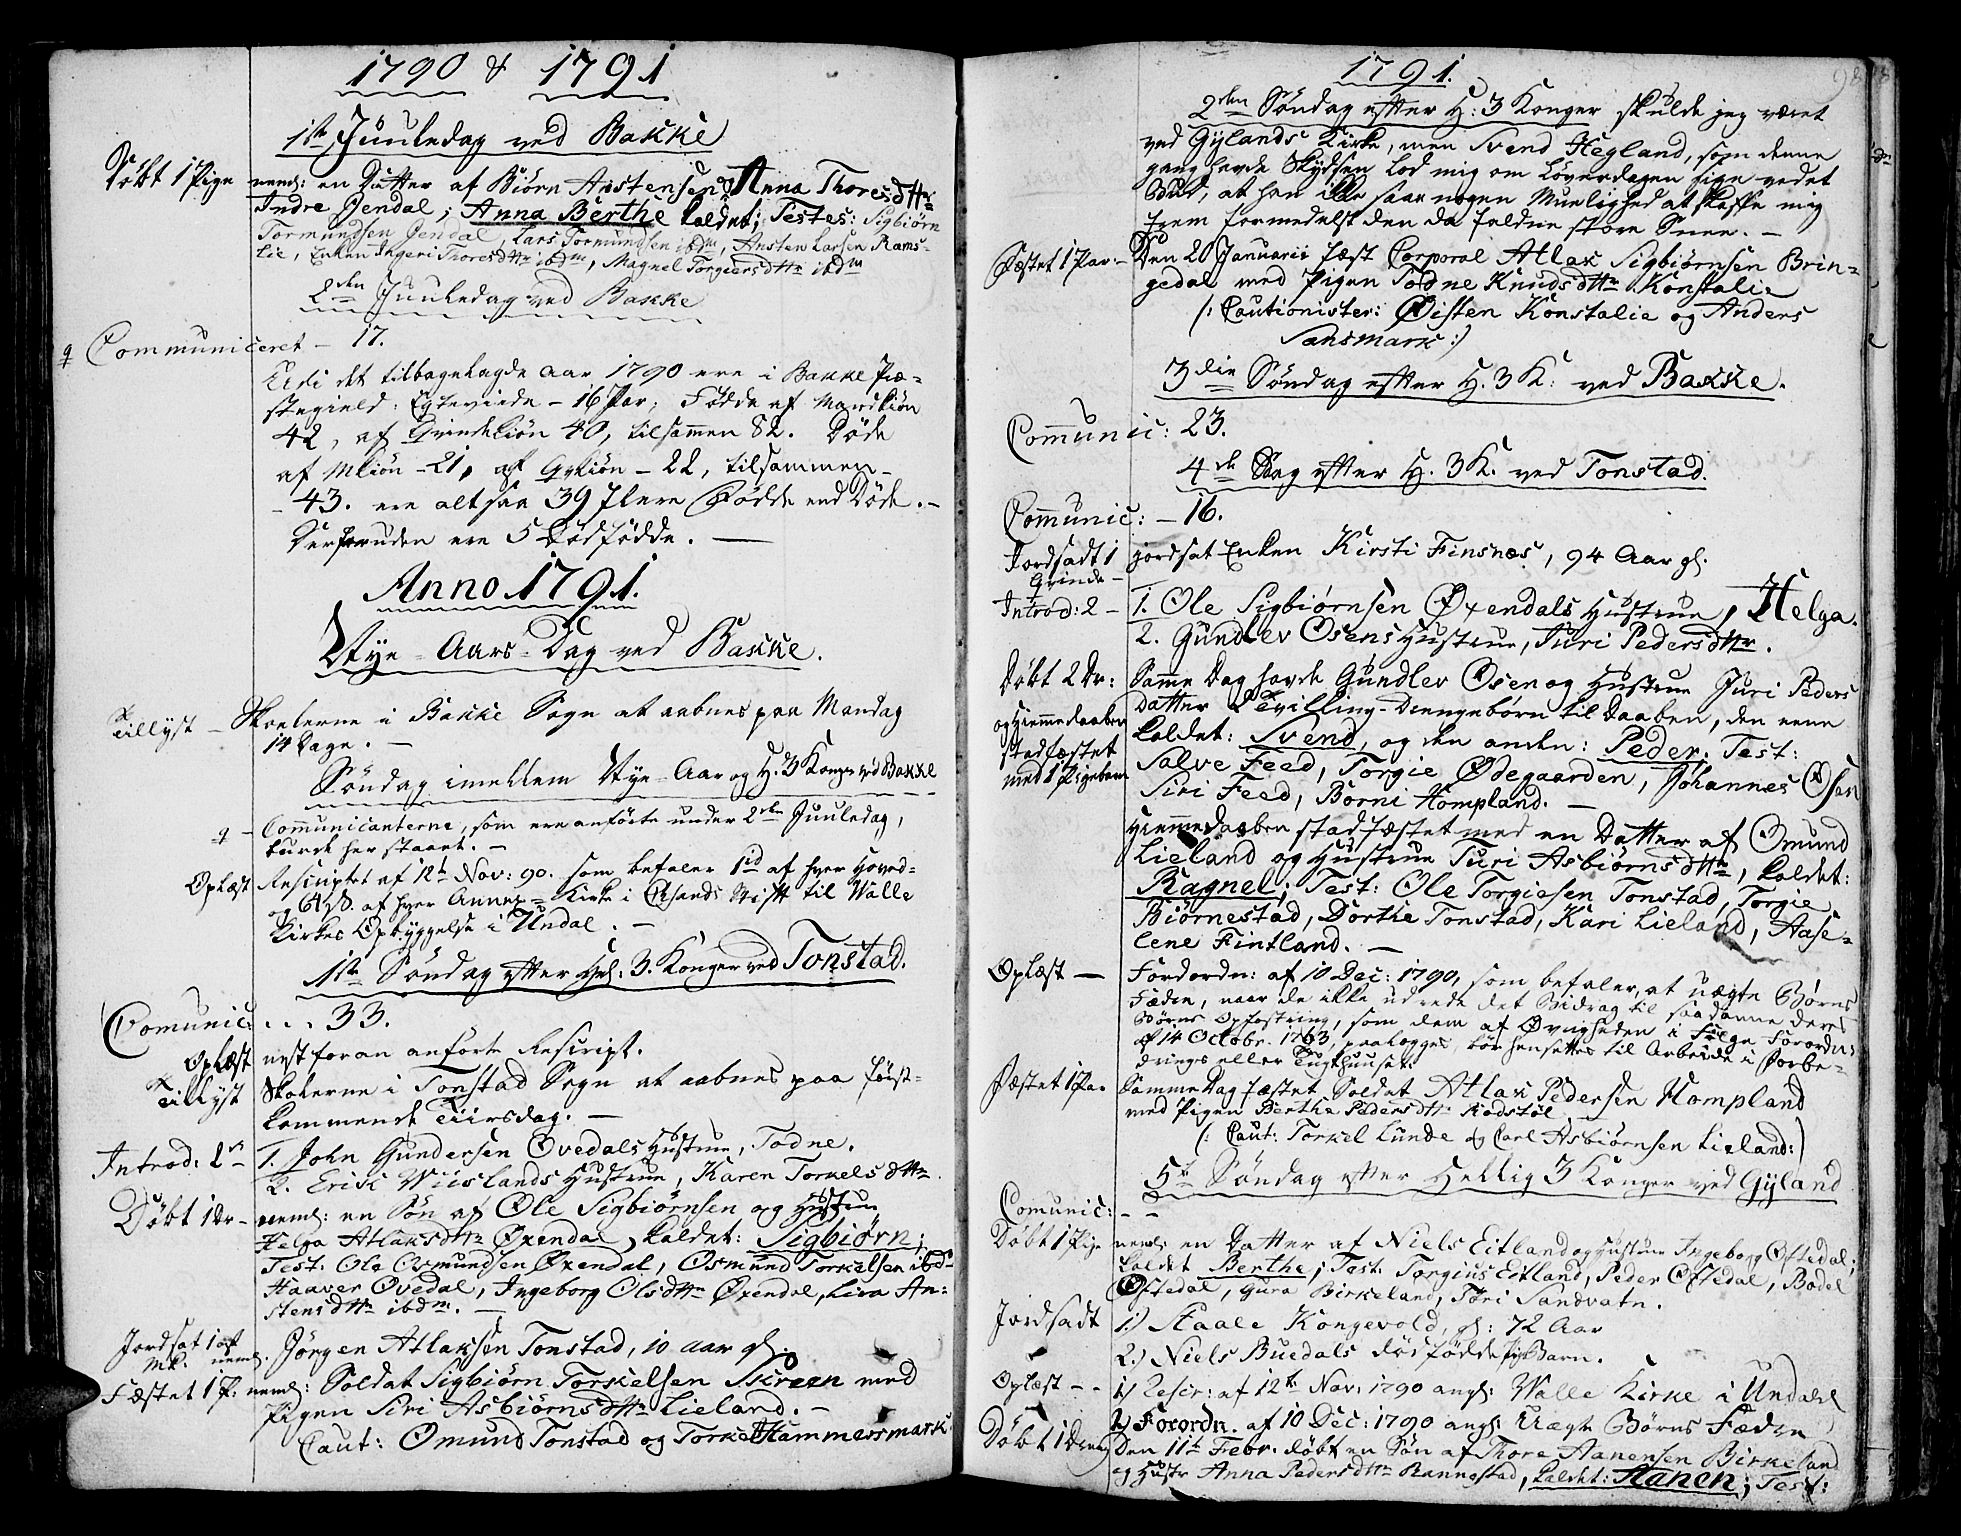 1790 & 1791
1ste Juuledag ved Bakke
Døbt 1 Pige neml: en Datter af Biørn Anstensen og Anna Thoresdttr
Indre Jendal; Anna Berthe kaldet; Testes: Sigbiørn
Tormundsen Jendal, Lars Tormundsen ibdm, Ansten Larsen Rams-
lie, Enken Ingeri Thoresdttr ibdm, Magnel Torgiersdttr ibdm
2den Juuledag ved Bakke
Communiceret – 17.
Udi det tilbagelagde Aar 1790 ere i Bakke Præ-
stegield: Egteviede – 16 Par; Fødde af Mandkiøn
42, af Qvindekiøn 40, tilsammen 82. Døde
af Mkiøn – 21, af Qvkiøn – 22, tilsammen –
– 43. ere altsaa 39 flere Fødde end Døde. –
Derforuden ere 5 Dødfødde. –
Anno 1791.
Nye-Aars-Dag ved Bakke.
Tillyst – Skolerne i Bakke Sogn at aabnes paa Mandag
14 Dage. –
Søndag imellem Nye-Aar og H. 3 Konger ved Bakke
Communicanterne, som ere anførte under 2den Juuledag,
burde her staaet. –
Oplæst Rescriptet af 12te Nov: 90. som befaler 1 rd af hver Hoved-
og 64 ß. af hver Annex-Kirke i Chsands Stift til Walle
Kirkes Opbyggelse i Undal. –
1ste Søndag efter Hel: 3. Konger ved Tonstad.
Comunic: . . . 33.
Oplæst nestforan anførte Rescript.
Tillyst Skolerne i Tonstad Sogn at aabnes paa først-
kommende Tiirsdag. –
Introd: 2de – 1. John Gundersen Ovedals Hustrue, Todne.
2. Erik Wiislands Hustrue, Karen Torkelsdttr.
Døbt 1 Dr – neml: en Søn af Ole Sigbiørnsen og Hustrue
Helga Atlaksdttr Øxendal, kaldet: Sigbiørn;
Test: Ole Osmundsen Øxendal, Osmund Torkelsen ibd
Haaver Ovedal, Ingeborg Olsdttr Øxendal, Liva An-
stensdttr ibdm. –
Jordsat 1 af Mk. neml. Jørgen Atlaksen Tonstad, 10 Aar gl.
Fæstet 1 P: neml: Soldat Sigbiørn Torkelsen Skreen med
Pigen Siri Asbiørnsdttr Lieland. –
Caut: Omund Tonstad og Torkel Hammersmark
1791.
2den Søndag efter H: 3 Konger skulde jeg været
ved Gylands Kirke, men Svend Hegland, som denne
gang havde Skydsen lod mig om Løverdagen sige vedet
Bud, at han ikke saae nogen Muelighed at skaffe mig
frem formedelst den da faldne store Snee. –
Fæstet 1 Par. – Den 20 Januarii fæst Corporal Atlak Sigbiørnsen Brin-
gedal med Pigen Todne Knudsdttr Konstali-
(: Cautionister: Øisten Konstalie og Anders
Sansmark :)
3die Søndag efter H. 3 K: ved Bakke.
Comunic: 23.
4de Sdag efter H. 3 K. ved Tonstad.
Comunic: – 16.
Jordsadt 1 Qvinde – jordsat Enken Kirsti Finsnes, 94 Aar gl.
Introd: 2 – 1. Ole Sigbiørnsen Øxendals Hustrue, Helga.
2. Gundlev Osens Hustrue, Juri Pedersdttr.
Døbt 2 Dr: Samme Dag havde Gundlev Osen og Hustrue Juri Peders
og Hiemmedaaben datter 2 Tvilling-Drengebørn til Daaben, den eene
stadfæstet kaldet: Svend, og den anden: Peder. Test:
med 1 Pigebarn Salve Feed, Torgie Ødegaarden, Johannes Osen
Siri Feed, Borni Hompland. –
Hiemmedaaben stadfæstet med en Datter af Omund
Lieland og Hustrue Turi Asbiørnsdttr, kaldet:
Ragnel; Test: Ole Torgiesen Tonstad, Torgie
Biørnestad, Dorthe Tonstad, Kari Lieland, Aase-
lene Fintland. –
Oplæst – Forordn: af 10 Dec: 1790, som befaler, at uægte Børns
Fædre, naar de ikke udrede det Bidrag til saadanne deres
Børns Opfostring, som dem af Øvrigheden i Følge Forordn:
af 14 Octobr. 1763, paalegges, bør hensettes til Arbeide i Forbe-
drings eller Tugthuuset.
Fæstet 1 Par Samme Dag fæstet Soldat Atlak Pedersen Hompland
med Pigen Berthe Pedersdttr Rødstøl
(: Caut: Torkel Lunde og Carl Asbiørnsen Lieland :)
5te Søndag efter Hellig 3 Konger ved Gyland
Comunic: – –
Døbt 1 Pige neml: en Datter af Niels Eitland og Hustrue Ingeborg Oftedal;
kaldet Berthe; Test: Torgius Eitland, Peder Oftedal, Bodel
Oftedal, Gura Birkeland, Tøri Sandvatn.
Jordsadt 1.) Staale Kongevold, gl: 72 Aar
2.) Niels Buedals dødfødde Barn.
Oplæst – – 1) Rescr: af 12te Nov: 1790 ang: Walle Kirke i Undalel
2) Forordn. af 10 Dec: 1790 ang: Uægte Børns Fædre
Døbt 1 Dreng Den 11te Febr. døbt en Søn af Thore Aanensen Birkeland
og Hustr Anna Pedersdttr Rannestad, kaldet: Aanen; Test: